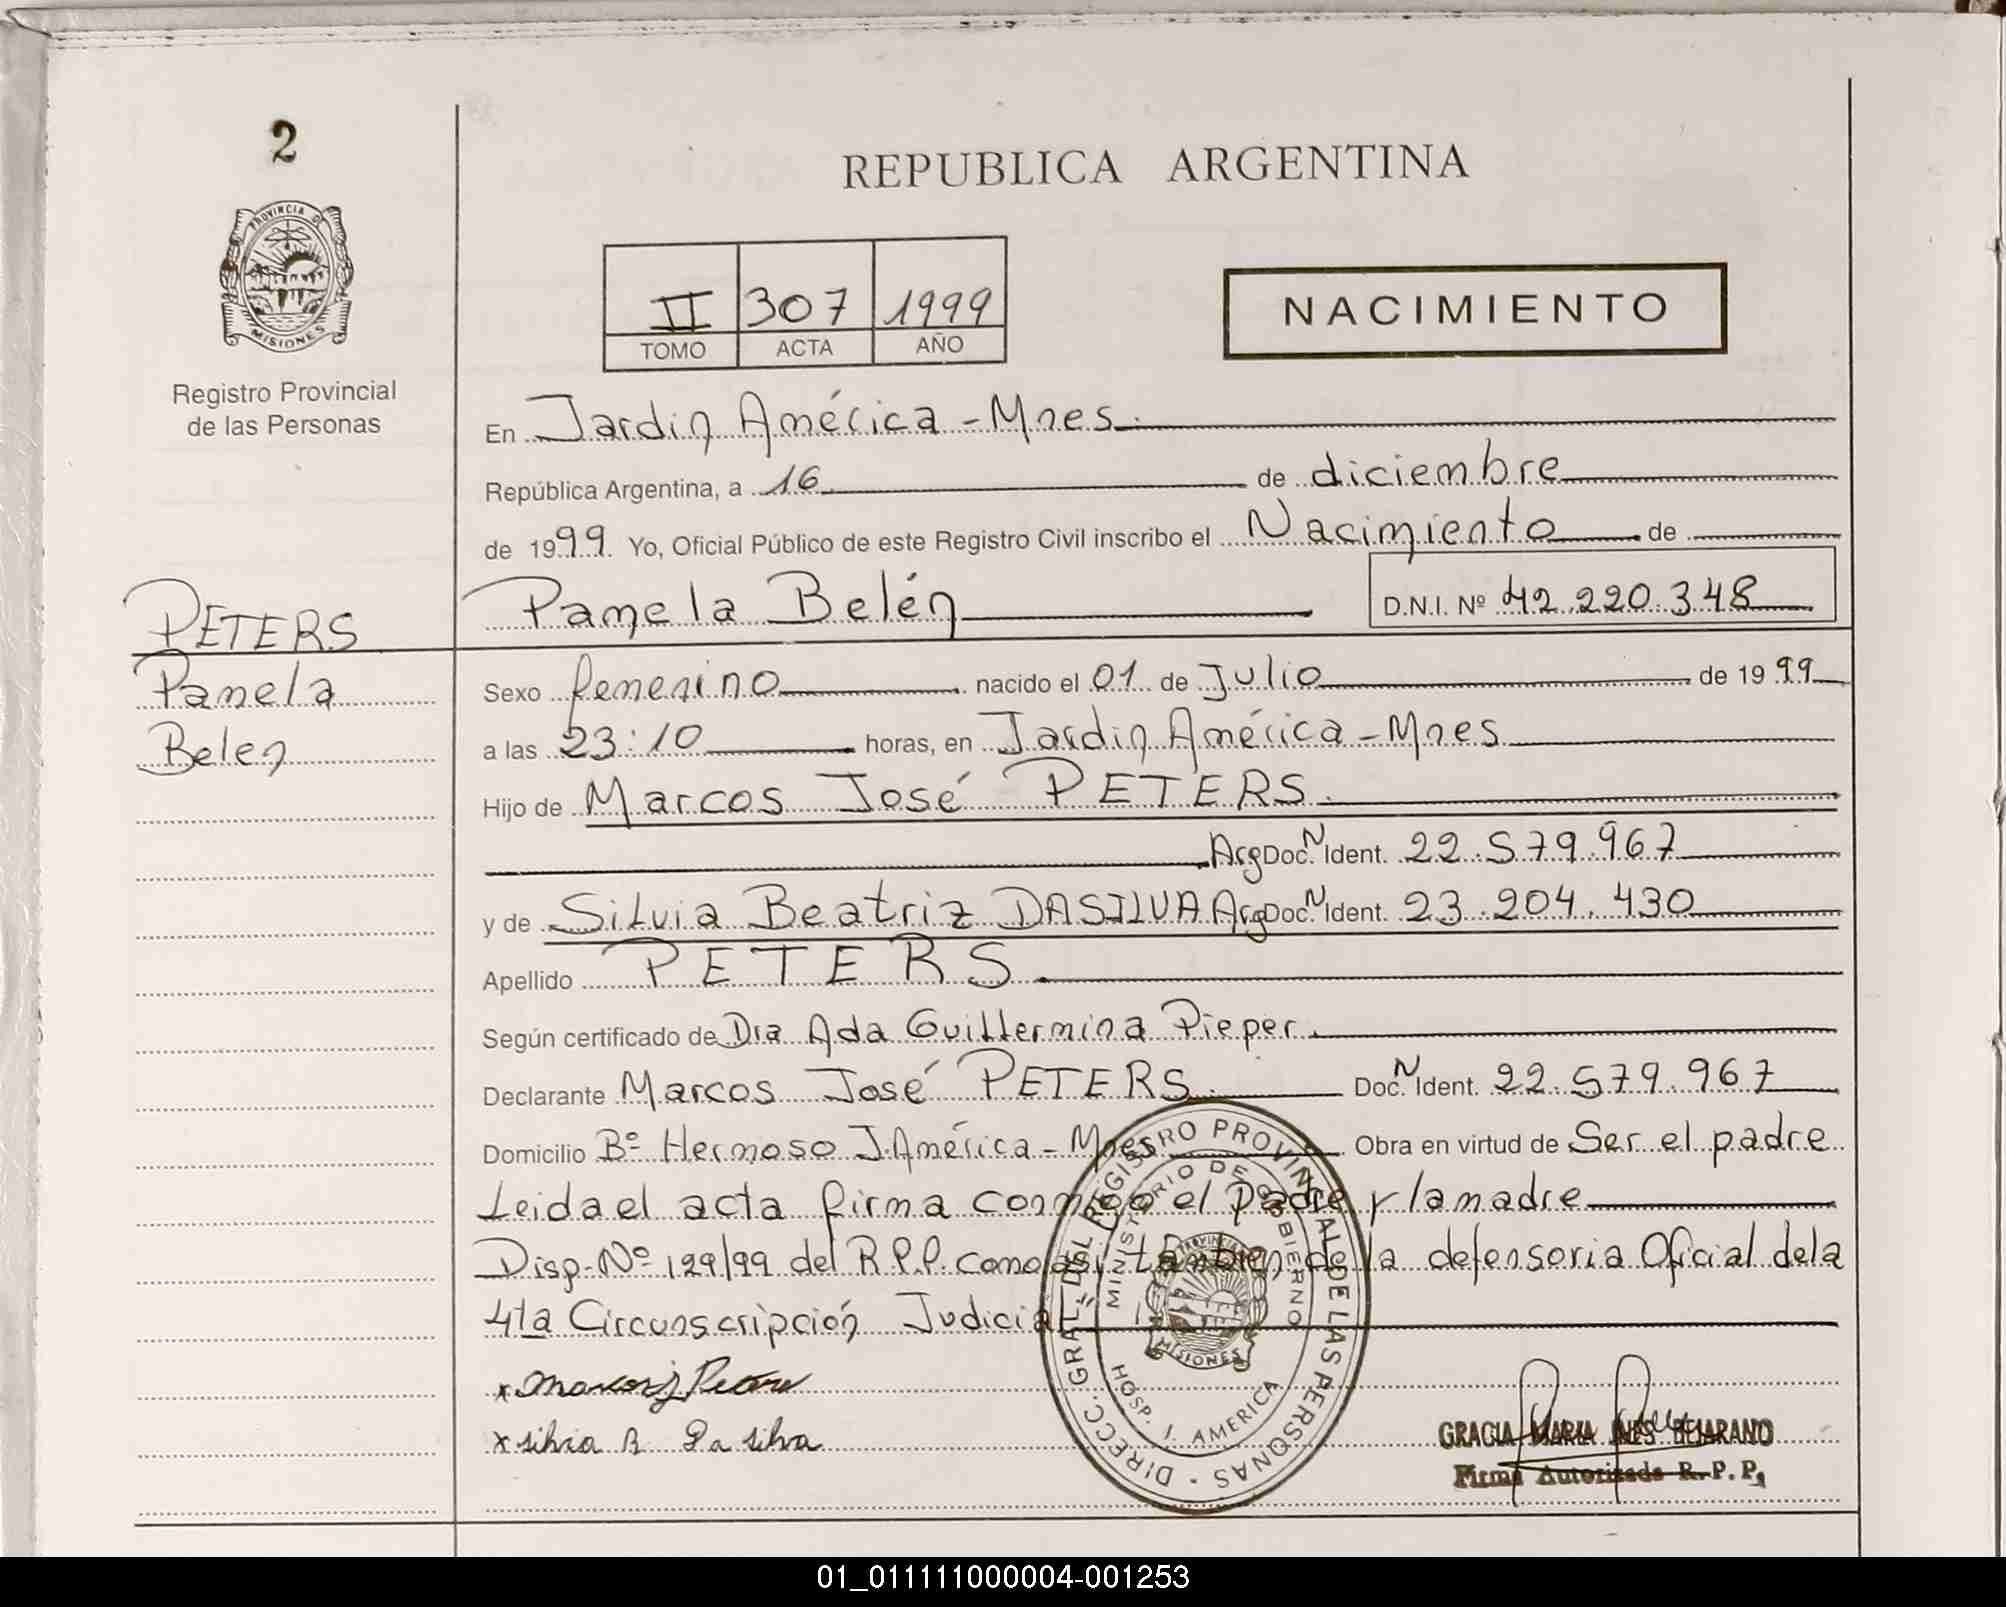 2
PROVINCIA DE
MISIONES
Registro Provincial
de las Personas
PETERS
Pamela
Belen
REPUBLICA ARGENTINA
II 307 1999
TOMO ACTA AÑO
NACIMIENTO
En Jardin América - Mnes.
República Argentina, a 16 de diciembre
de 1999. Yo, Oficial Público de este Registro Civil inscribo el Nacimiento de
Pamela Belén D.N.I. Nº 42.220.348
Sexo femenino nacido el 01 de Julio de 1999
a las 23:10 horas, en Jardin América - Mnes
Hijo de Marcos José PETERS.
Arg Doc. N Ident. 22.579.967
y de Silvia Beatriz DASILVA Arg Doc. N Ident. 23.204.430
Apellido PETERS.
Según certificado de Dra Ada Guillermina Pieper.
Declarante Marcos José PETERS. Doc. N Ident. 22.579.967
Domicilio Bº Hermoso J. América - Mnes Obra en virtud de Ser el padre
Leida el acta firma conmigo el Padre y la madre
Disp. Nº 129/99 del R.P.P. como asi tambien de la defensoria Oficial de la
4ta Circunscripción Judicial
x Marcos J Peters
x silvia B Da silva
DIRECC. GRAL. DEL REGISTRO PROVINCIAL DE LAS PERSONAS
MINISTERIO DE GOBIERNO
HOSP. J. AMERICA
PROVINCIA
MISIONES
GRACIA MARIA INES BEJARANO
Firma Autorizada R.P.P.
01_011111000004-001253